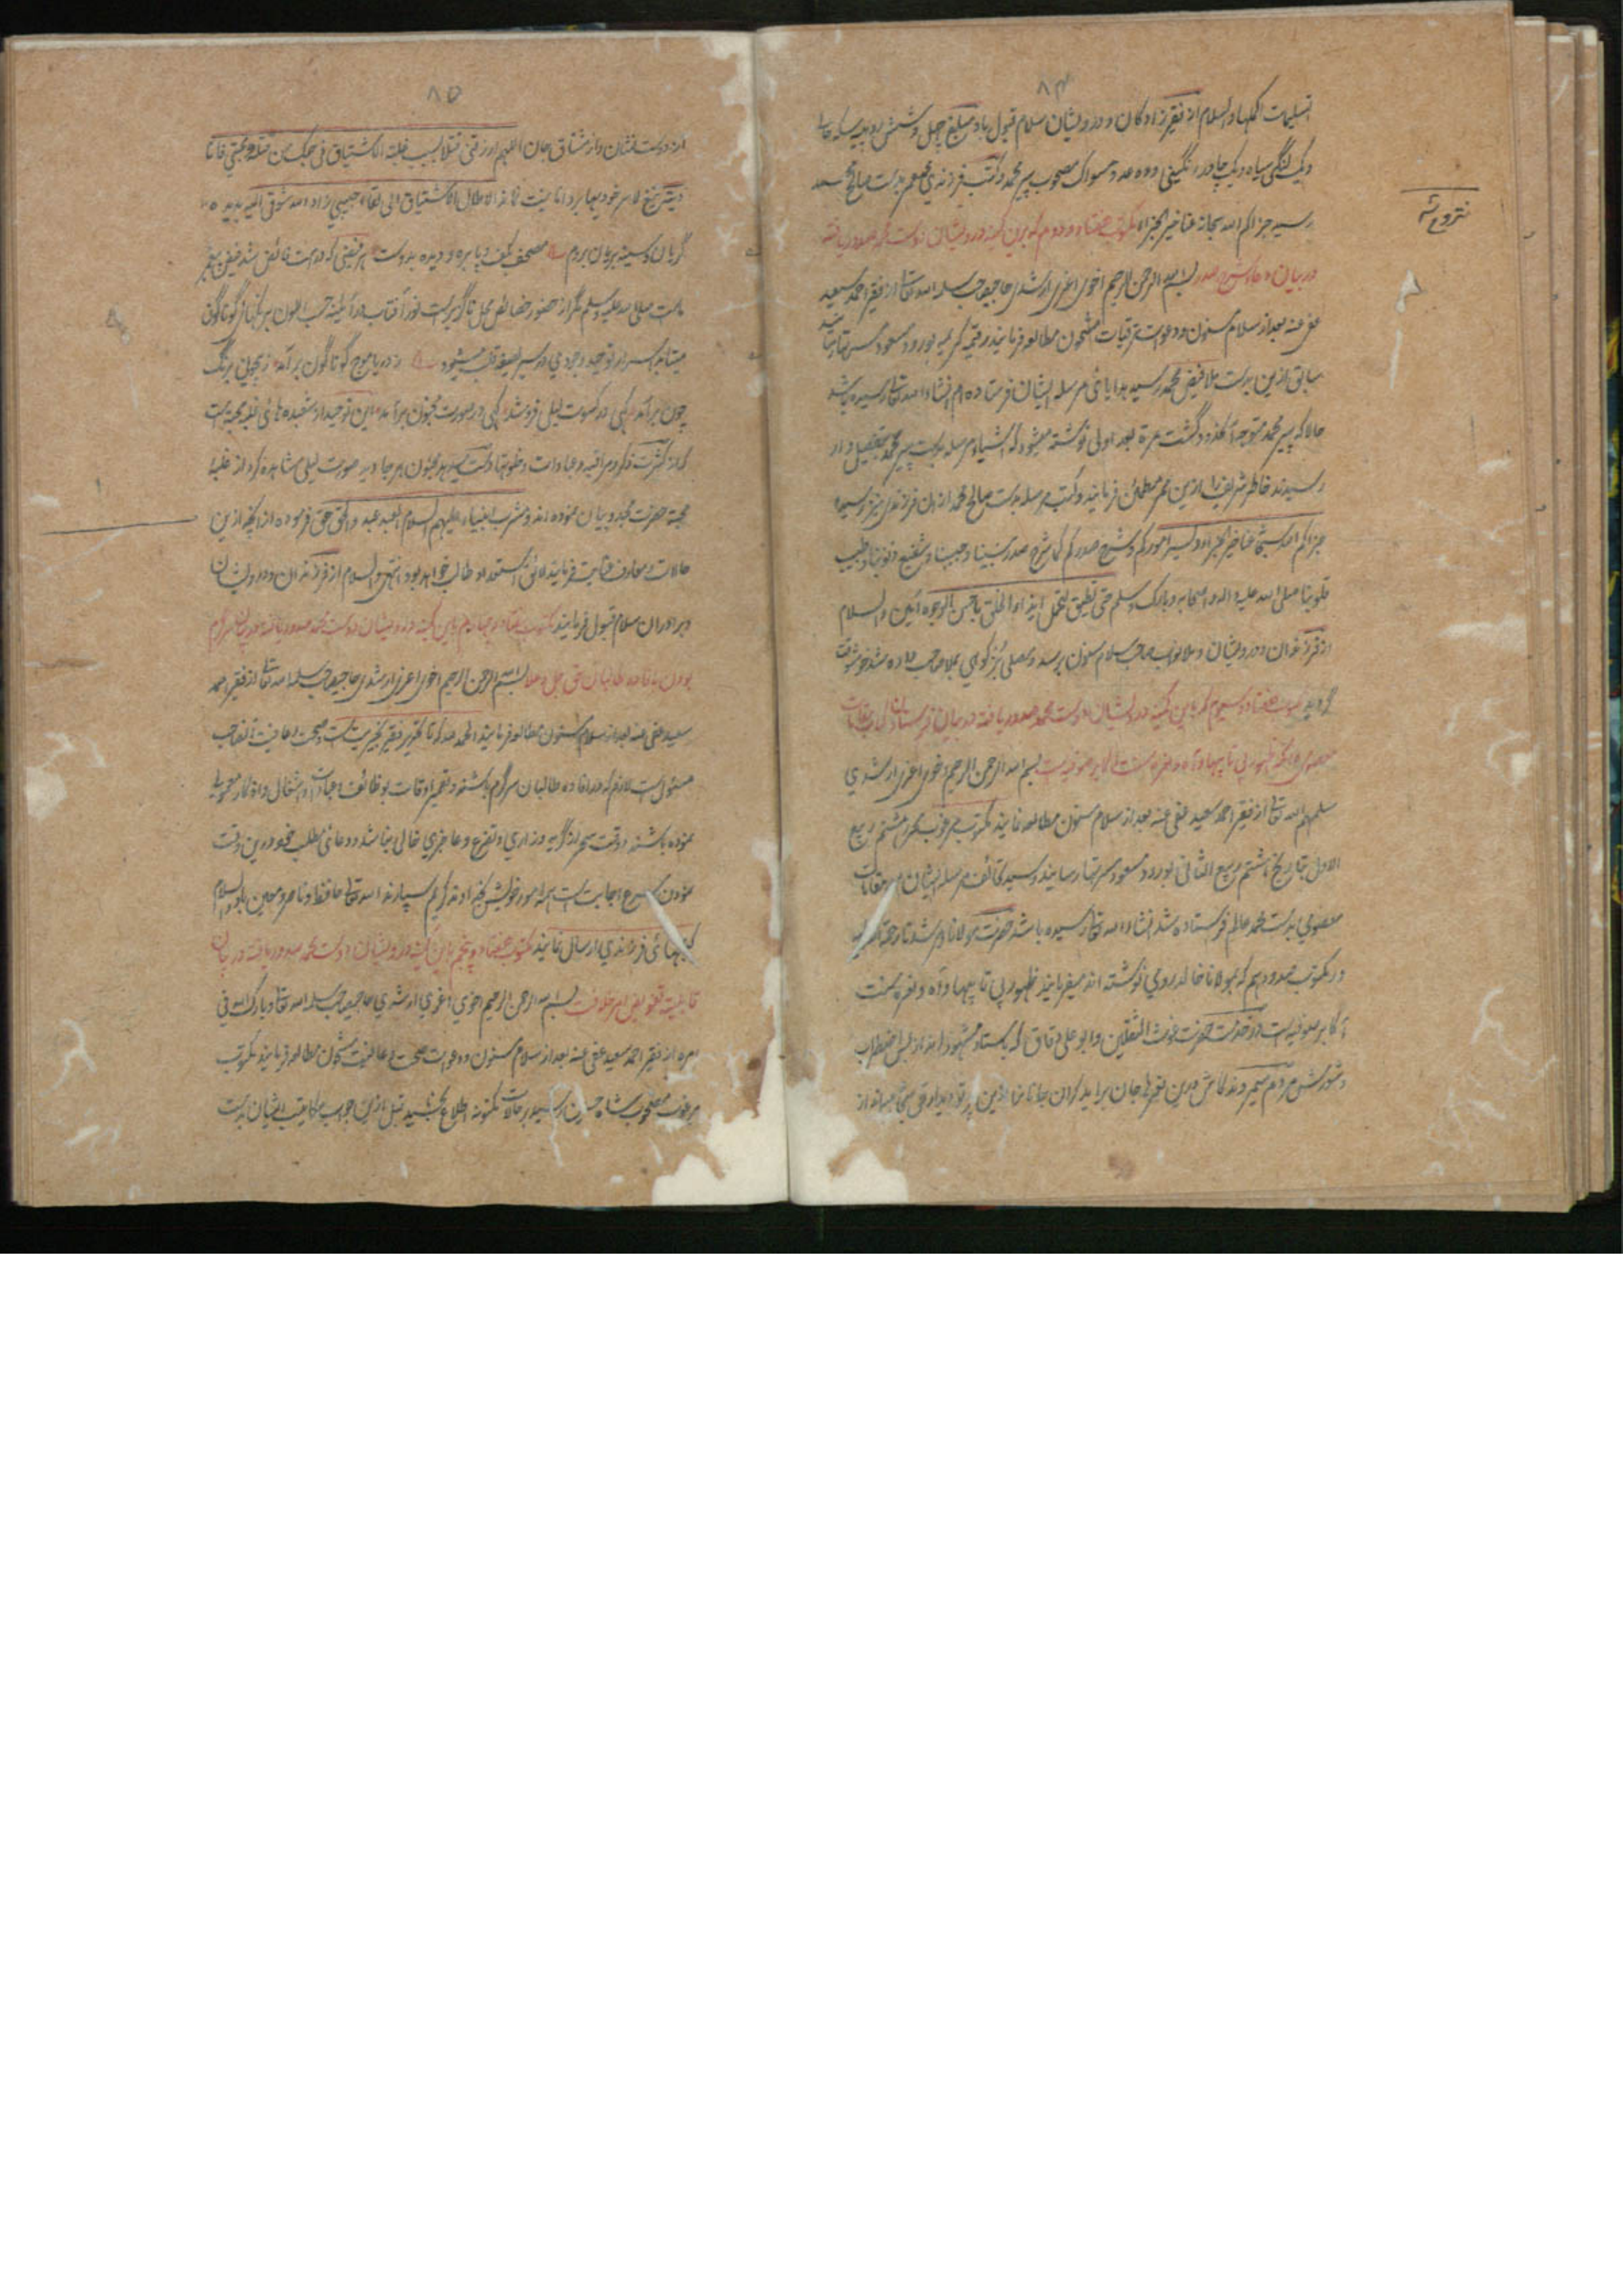 ۸۴
تسلیمات اکملها والسلام از فقیر زادکان و درویشان سلام قبول باد مبلغ چهل و شش روپیه سکه
و یک لنگی سیاه و یک چادر رنگینی و ده عدد مسواک مصحوب پیر محمد و کتب فرزندی بدست صالح محمد
رسید جزاکم الله سبحانه عنا خیر الجزاء مکتوب هفتاد و دوم که باین کمینه درویشان دوست محمد صدور یافته
در بیان دعاء شرح صدر بسم الله الرحمن الرحیم اخوی اعزی ارشدی حاجیصاحب سلمه الله تعالی از فقیر احمد سعید
عفی عنه بعد از سلام مسنون و دعوات ترقیات مشحون مطالعه فرمایند رقیمه کریمه بورود مسعود
سابق ازین بدست ملا فیض محمد رسید هدایائی مرسله ایشان فرستاده ام انشاء الله تعالی رسیده باشد
حالا که پیر محمد متوجه آنحدود گشت مرة بعد اولی نوشته میشود که اشیاء مرسله بدست پیر محمد بتفصیل وار
رسیدند خاطر شریف را ازین ممر مطمئن فرمایند و کتب مرسله بدست صالح محمد از ان فرزندی نیز رسیده
جزاکم الله سبحانه عنا خیر الجزاء و یسر امورکم و شرح صدورکم کما شرح صدر نبینا و حبیبنا و شفیع ذنوبنا و طبیب
قلوبنا صلی الله علیه و اله و اصحابه و بارک و سلم حتی تطیق لتحمل ایذاء الخلق باحسن الوجوه آمین والسلام
از فرزندان و درویشان و ملا نواب صاحب سلام مسنون برسد و مصلی بز کوهی بملا صاحب داده شد خوشوقت
گردید مکتوب هفتاد و سیوم که باین کمینه درویشان دوست محمد صدور یافته در بیان فرستادن کتاب مقامات
معصومی و انکه ظهور بی تابیها و آه و نعره سنت اکابر صوفیه است بسم الله الرحمن الرحیم اخوی اعزی ارشدی
سلمهم الله تعالی از فقیر احمد سعید عفی عنه بعد از سلام مسنون مطالعه نمایند مکتوب مرغوب محرره هشتم ربیع
الاول بتاریخ هشتم ربیع الثانی بورود مسعود مسرتها رسانید و رسید تحائف مرسله ایشان مع مقامات
معصومی بدست محمد عالم فرستاده شد انشاء الله تعالی رسیده باشد حضرت مولانا و مرشدنا رحمة الله علیه
در مکتوب صد و دهم که بمولانا خالد رومی نوشته اند میفرمایند ظهور بی تابیها و آه و نعره سنت
اکابر صوفیه است در خدمت حضرت غوث الثقلین و ابو علی دقاق که باستاد مشهور اند از بس اضطراب
و شورش مردم میمردند کاش درین نعرها جان براید
تروع شه
۸۵
از دوست نشان و از مشتاق جان اللهم ارزقنی قتلا بسبب غلبة الاشتیاق فی حبک من قتلته محبتی فانا
دیته
گریان و سینه بریان بردم مصحف بکف و پا بره و دیده بدوست هر فیضی که در امت فائض شد فیض پیغمبر
ماست صلی الله علیه و سلم مگر از حضور خصائص محل تأثیر است نور آفتاب در آئینه حسب الوان برنگهای گوناگون
میتابد اسرار توحید وجودی در سیر لطیفه قلب میشود ز دریا موج گوناگون برآمد ز بیچونی برنگ
چون برآمد گهی در کسوت لیلی فروشد گهی در صورت مجنون برآمد این توحید از شعبده های غلبه محبت است
که از کثرت ذکر و مراقبه و عبادات و خلوتها دست میدهد مجنون هر جا و بیجا صورت لیلی مشاهده کرد از غلبه
محبت حضرت مجدد بیان نموده اند و مشرب انبیاء علیهم السلام العبد عبد والحق حق فرموده اند انچه ازین
حالات و معارف عنایت فرمایند لائق استعداد طالب خواهد بود انتهی والسلام از فرزندان و درویشان
و برادران سلام قبول فرمایند مکتوب هفتاد و چهارم باین کمینه درویشان دوست محمد صدور یافته در بیان سرگرم
بودن بافاده طالبان حق جل و علا بسم الله الرحمن الرحیم اخوی اعزی ارشدی حاجیصاحب سلمه الله تعالی از فقیر احمد
سعید عفی عنه بعد از سلام مسنون مطالعه فرمایند الحمد لله که تا تحریر فقیر بخیریت است و صحت و عافیت انصاحب
مسئول است لازم که در افاده طالبان سرگرم باشند و بتعمیر اوقات بوظائف و عبادات و اشغال و اذکار معموله
نموده باشند و وقت سحر از گریه و زاری و تضرع و عاجزی خالی نباشد و دعائی مطلب خود درین وقت
نمودن اسرع اجابت است همه امور خویش بخداوند کریم سپارند الله تعالی حافظ و ناصر و معین باد والسلام
کتابهائی فرزندی ارسال نمایند مکتوب هفتاد و پنجم باین کمینه درویشان دوست محمد صدور یافته در بیان
قابلیت تفویض امر خلافت بسم الله الرحمن الرحیم اخوی اعزی ارشدی حاجیصاحب سلمه الله تعالی و بارک الله فی
امره از فقیر احمد سعید عفی عنه بعد از سلام مسنون و دعوات صحت و عافیت مشحون مطالعه فرمایند مکتوب
مرغوب مصحوب شاه حسین رسید بر حالات مکنونه اطلاع بخشید قبل ازین جواب مکاتیب ایشان بدست